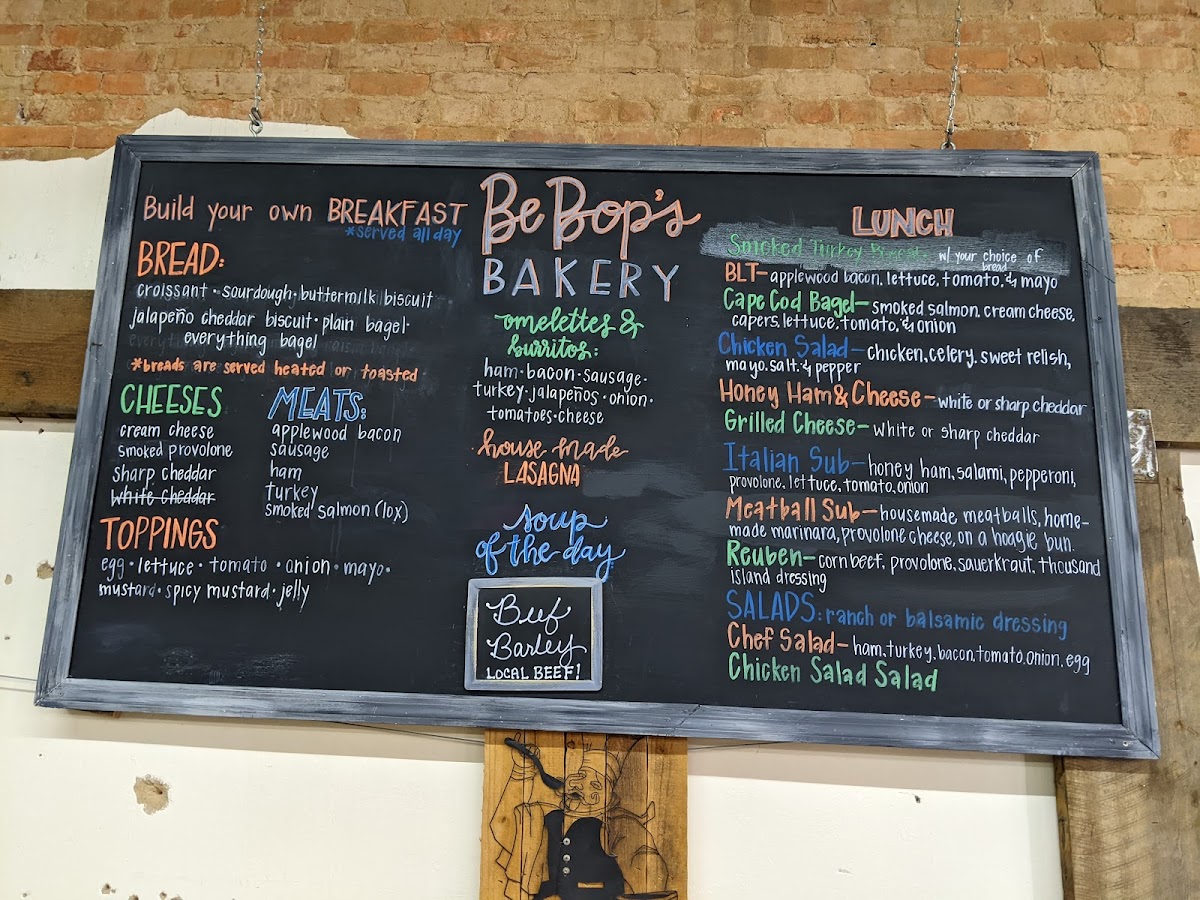 Build your own BREAKFAST
*served all day
BREAD:
croissant · sourdough · buttermilk biscuit
jalapeño cheddar biscuit · plain bagel ·
everything bagel
*breads are served heated or toasted
CHEESES
cream cheese
smoked provolone
sharp cheddar
white cheddar
MEATS:
applewood bacon
sausage
ham
turkey
smoked salmon (lox)
TOPPINGS
egg · lettuce · tomato · onion · mayo ·
mustard · spicy mustard · jelly
BeBop's
BAKERY
omelettes &
burritos:
ham · bacon · sausage ·
turkey · jalapeños · onion ·
tomatoes · cheese
house made
LASAGNA
soup
of the day
Beef
Barley
LOCAL BEEF!
LUNCH
Smoked Turkey w/ your choice of
bread
BLT— applewood bacon, lettuce, tomato, & mayo
Cape Cod Bagel— smoked salmon, cream cheese,
capers, lettuce, tomato, & onion
Chicken Salad— chicken, celery, sweet relish,
mayo, salt, & pepper
Honey Ham & Cheese— white or sharp cheddar
Grilled Cheese— white or sharp cheddar
Italian Sub— honey ham, salami, pepperoni,
provolone, lettuce, tomato, onion
Meatball Sub— housemade meatballs, home-
made marinara, provolone cheese, on a hoagie bun.
Reuben— corn beef, provolone, sauerkraut, thousand
island dressing
SALADS: ranch or balsamic dressing
Chef Salad— ham, turkey, bacon, tomato, onion, egg
Chicken Salad Salad